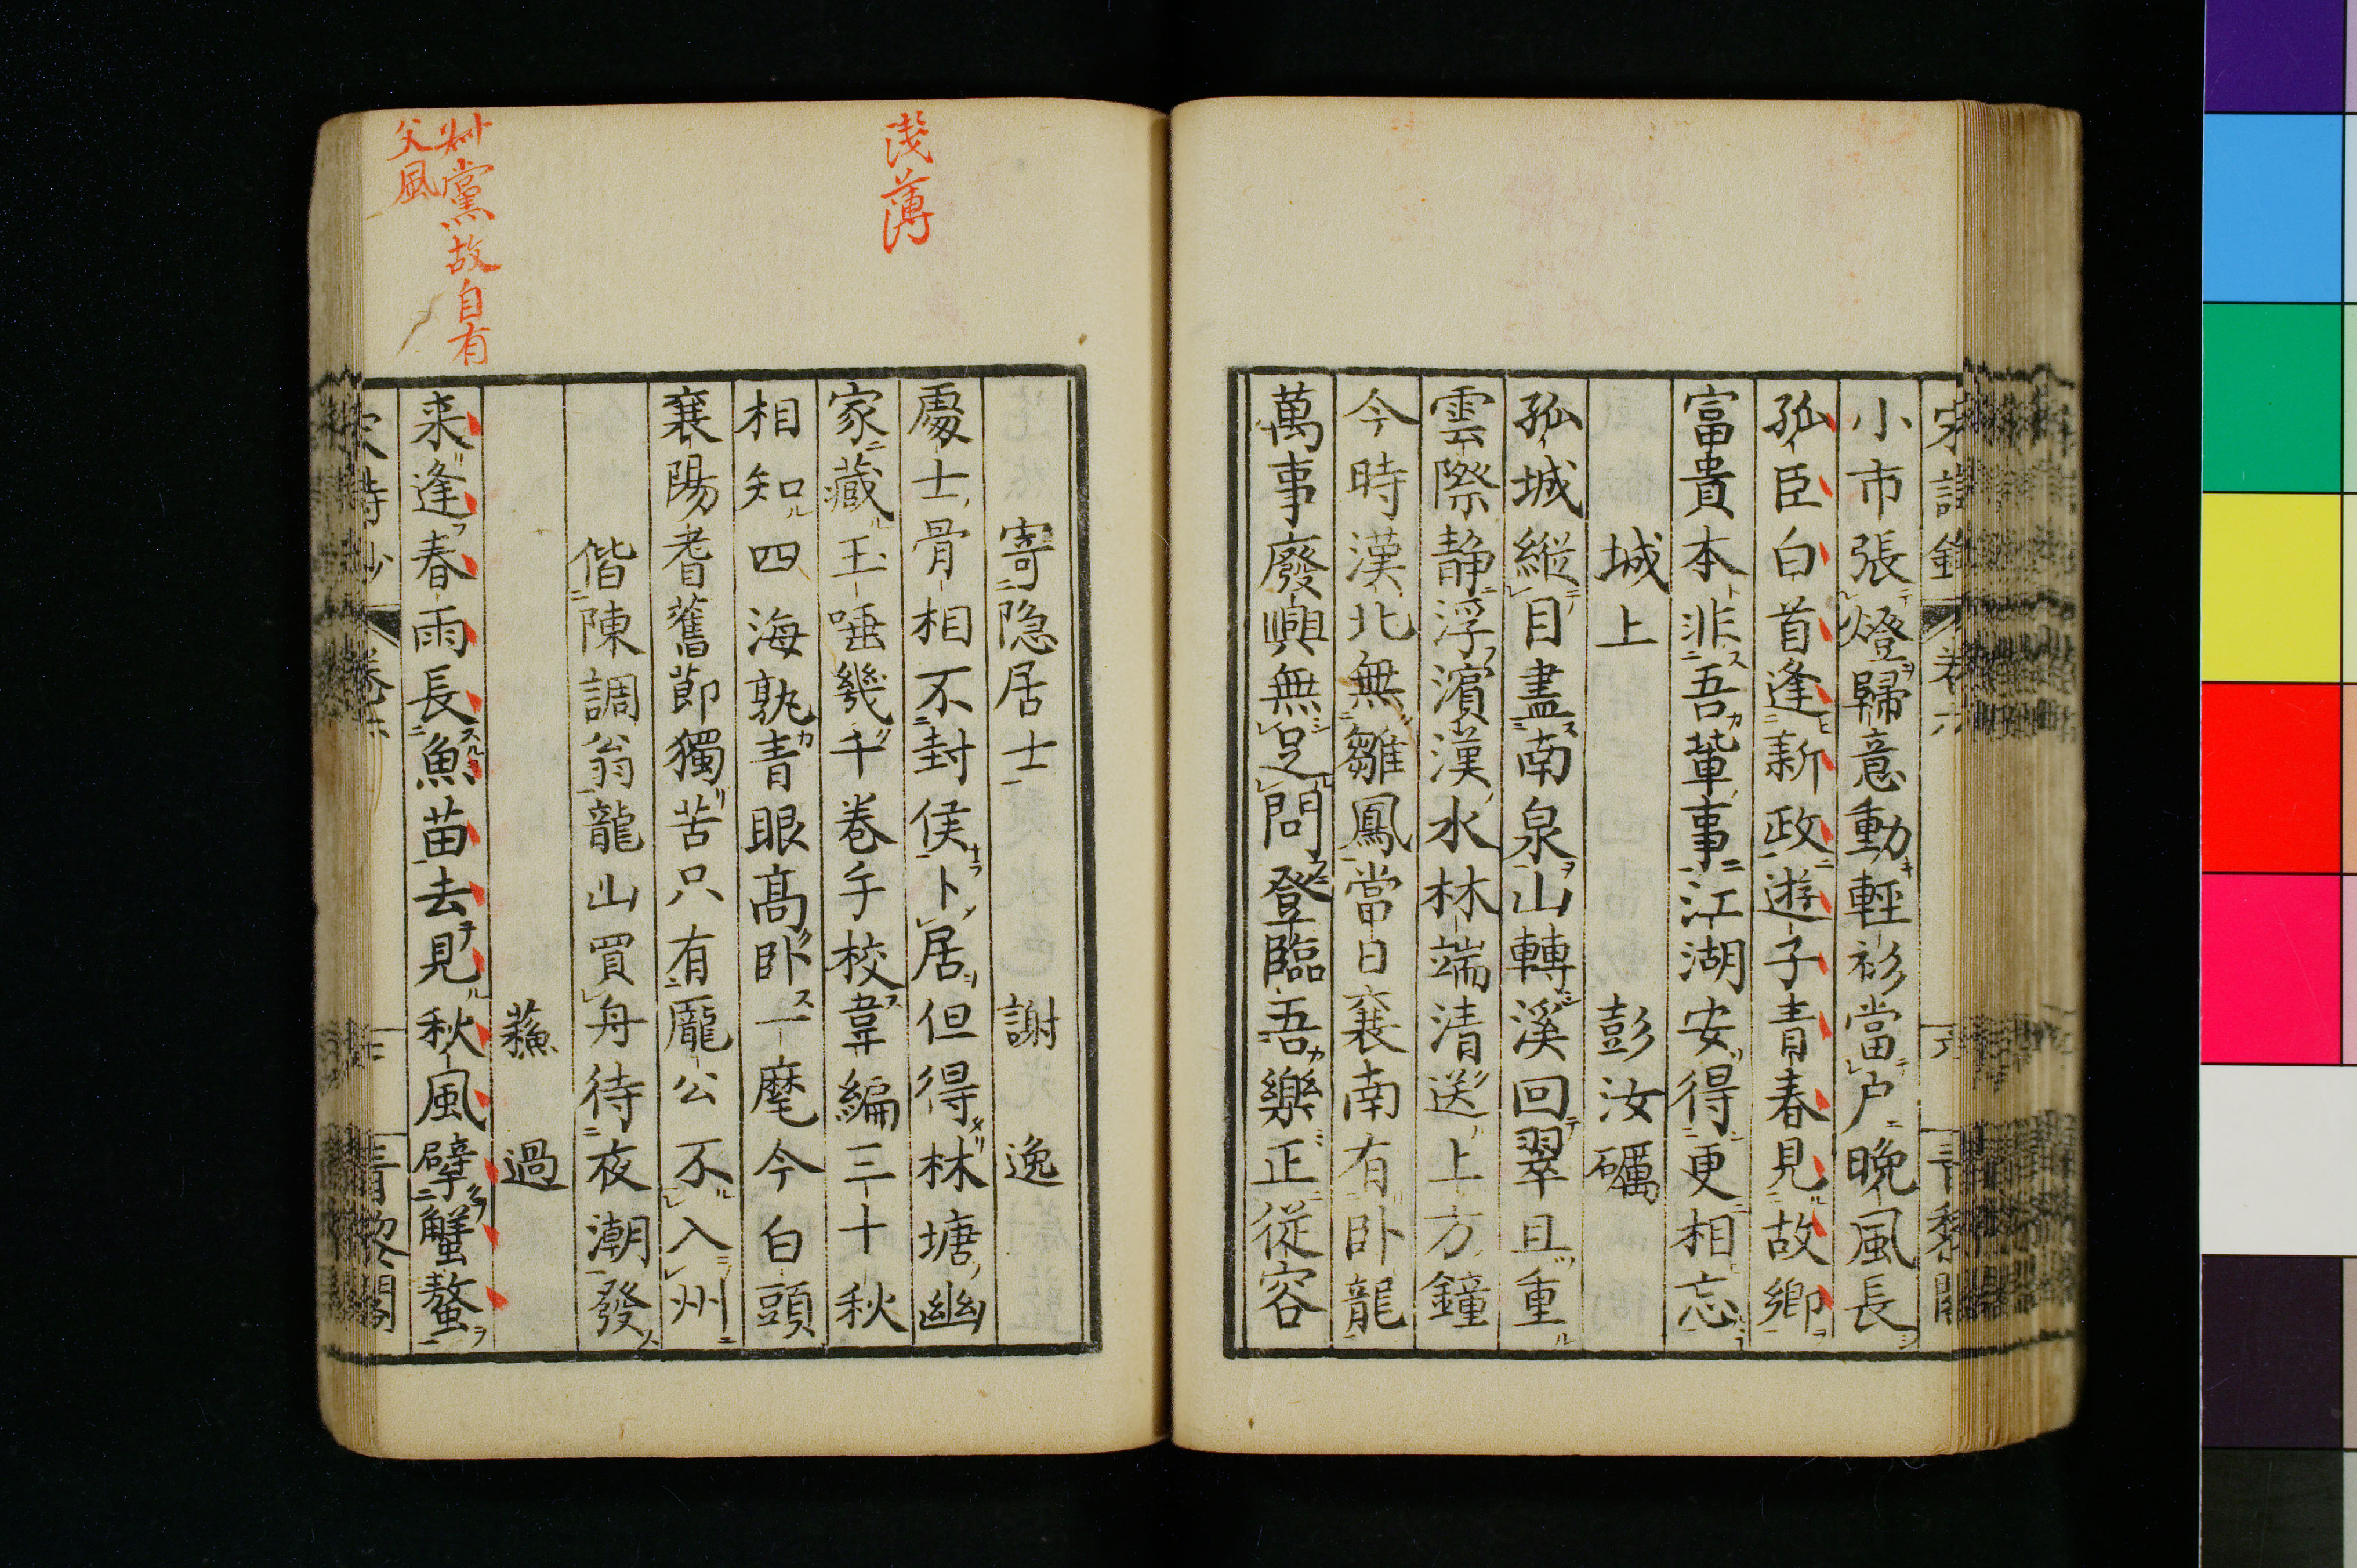 小市張燈歸意動輕衫當戶晚風長
孤臣白首逢新政遊子青春見故鄉
富貴本非吾輩事江湖安得更相忘
城上　彭汝礪
孤城縱目盡南泉山轉溪回翠且重
雲際靜浮濱漢水林端清送上方鐘
今時漢北無雛鳳當日襄南有臥龍
萬事廢興無足問登臨吾樂正從容
淺薄
寄隱居士　謝逸
處士骨相不封侯卜居但得林塘幽
家藏玉唾幾千卷手校韋編三十秋
相知四海孰青眼高臥一麾今白頭
襄陽耆舊節獨苦只有龐公不入州
偕陳調翁龍山買舟待夜潮發
蘓過
黨故自有
父風
来逢春雨長魚苗去見秋風擘蟹螯